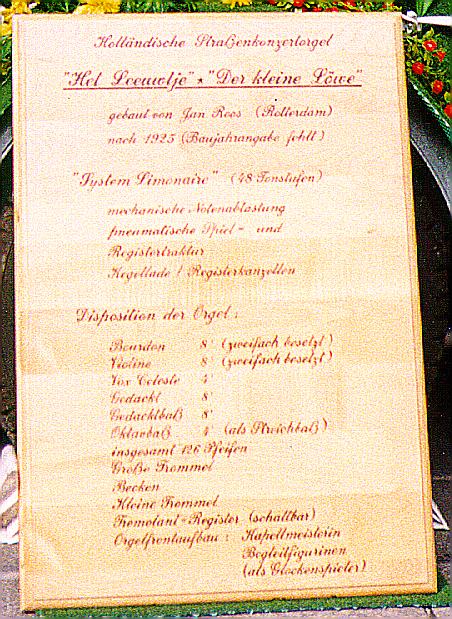 Holländische Straßenkonzertorgel
"Het Leeuwtje" * "Der kleine Löwe"
gebaut von Jan Roos (Rotterdam)
nach 1925 (Baujahrangabe fehlt)
"System Limonaire" (48 Tonstufen)
mechanische Notenabtastung
pneumatische Spiel- und
Registertraktur
Kegellade / Registerkanzellen
Disposition der Orgel:
Bourdon 8' (zweifach besetzt)
Violine 8' (zweifach besetzt)
Vox Celeste 4'
Gedackt 8'
Gedacktbaß 8'
Oktavbaß 4' (als Streichbaß)
insgesamt 126 Pfeifen
Große Trommel
Becken
Kleine Trommel
Tremolant-Register (schaltbar)
Orgelfrontaufbau: Kapellmeisterin
Begleitfigurinen
(als Glockenspieler)